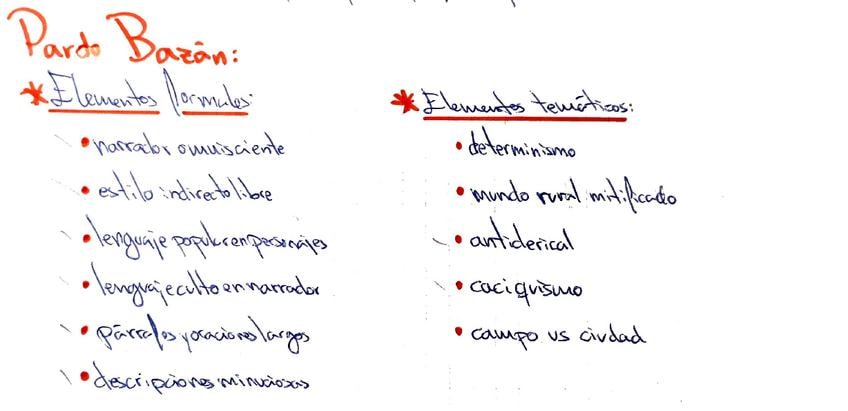 Pardo Bazán:
* Elementos formales:
• narrador omnisciente
• estilo indirecto libre
• lenguaje popular en personajes
• lenguaje culto en narrador
• párrafos y oraciones largos
• descripciones minuciosas
* Elementos temáticos:
• determinismo
• mundo rural mitificado
• anticlerical
• caciquismo
• campo vs ciudad